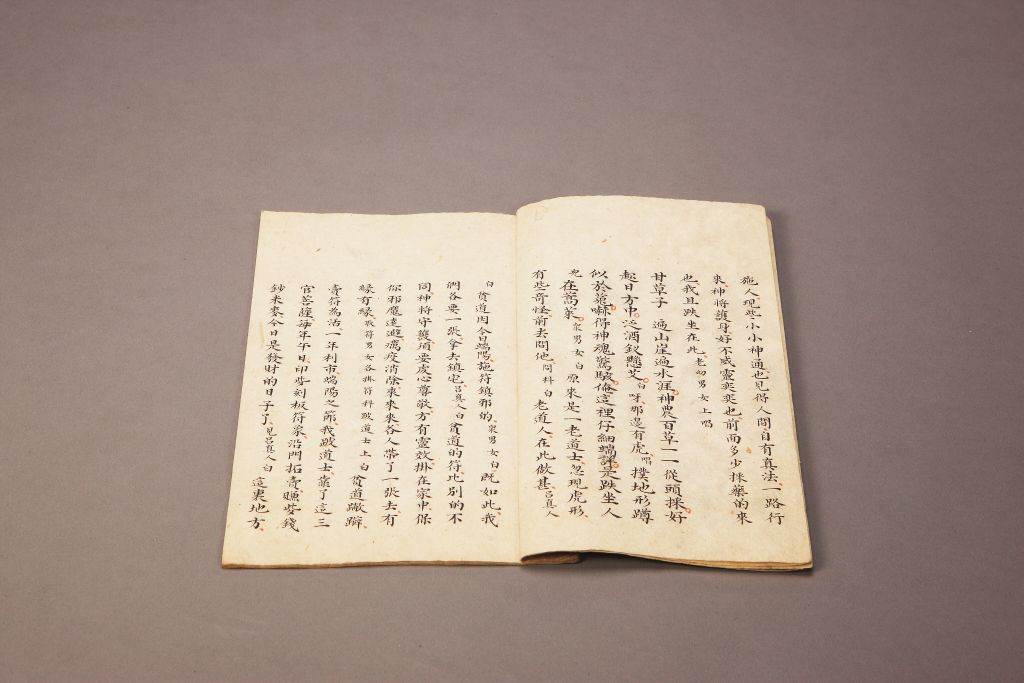 施人現些小小神通也見得人間自有真法一路行
來神將護身好不威靈奕奕也前面多少採藥的來
也我且趺坐在此老幼男女上唱
甘草子 遍山崖遍水涯神農百草一一從頭採好
趁日方中泛酒釵懸艾白呀那邊有虎唱撲地形蹲
似於菟嚇得神魂驚駭偷這裡仔細端詳是趺坐人
兒在蒿萊衆男女白原來是一老道士忽現虎形
有些奇怪前去問他問科白老道人在此做甚呂真人
白貧道因今日端陽施符鎮邪的衆男女白既如此我
們各要一張拿去鎮宅呂真人白貧道的符比別的不
同神將守護須要虔心尊敬方有靈效掛在家中保
你邪魔遠避癘疫消除來來來各人帶了一張去有
緣有緣取符男女各掛符科跛道士上白貧道蹩躃
賣符為活一年利市端陽之節我跛道士靠了這三
官菩薩每年午日印些刻板符篆沿門拓賣賺些錢
鈔米麥今日是發財的日子了見呂真人白這裏地方